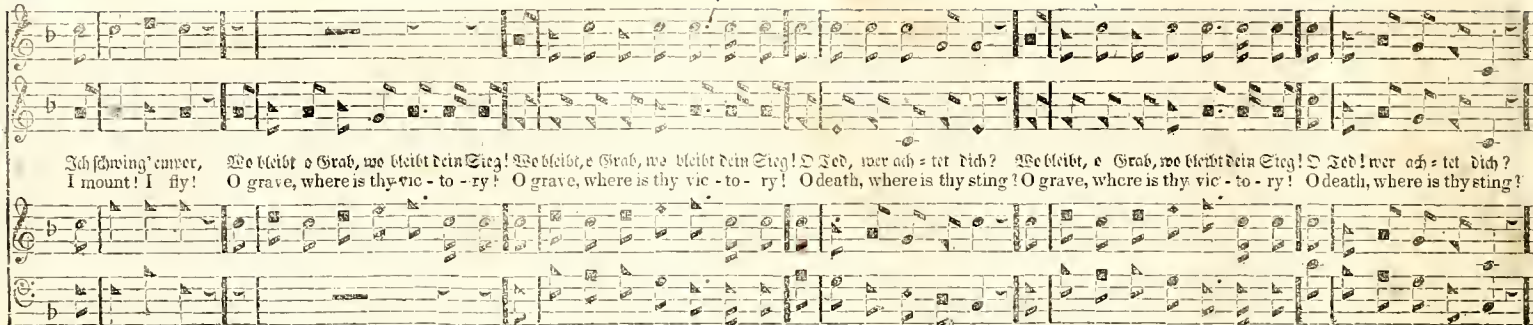 Ich schwing' empor, Wo bleibt o Grab, wo bleibt dein Sieg! Wo bleibt, o Grab, wo bleibt dein Sieg! O Tod, wer ach = tet dich? Wo bleibt, o Grab, wo bleibt dein Sieg! O Tod! wer ach = tet dich?
I mount! I fly! O grave, where is thy vic - to - ry! O grave, where is thy vic - to - ry! O death, where is thy sting? O grave, where is thy vic - to - ry! O death, where is thy sting?